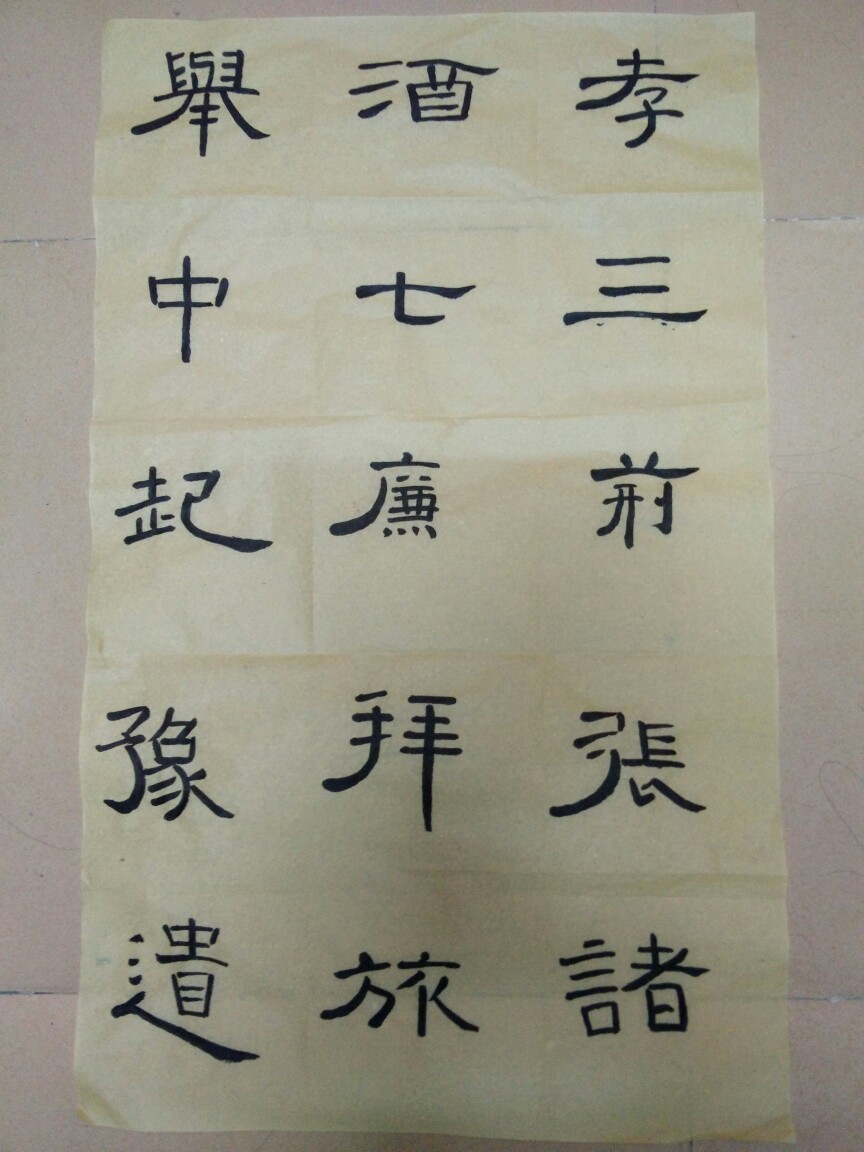 孝三前張諸
酒七廉拜旅
舉中起豫遺